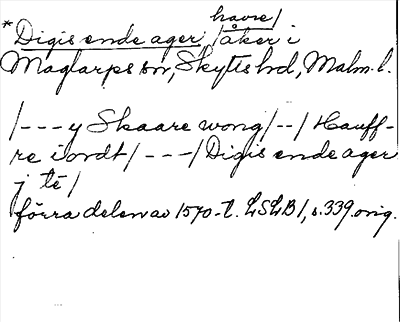 havre/
*Digis ende ager, /åker i
Maglarps sn, Skytts hd, Malm. l.
/---y Skaare wong/--/Hauff-
re iordt/---/Digis ende ager
j tē/
förra delen av 1570-t. LSLB1, s. 339 orig.